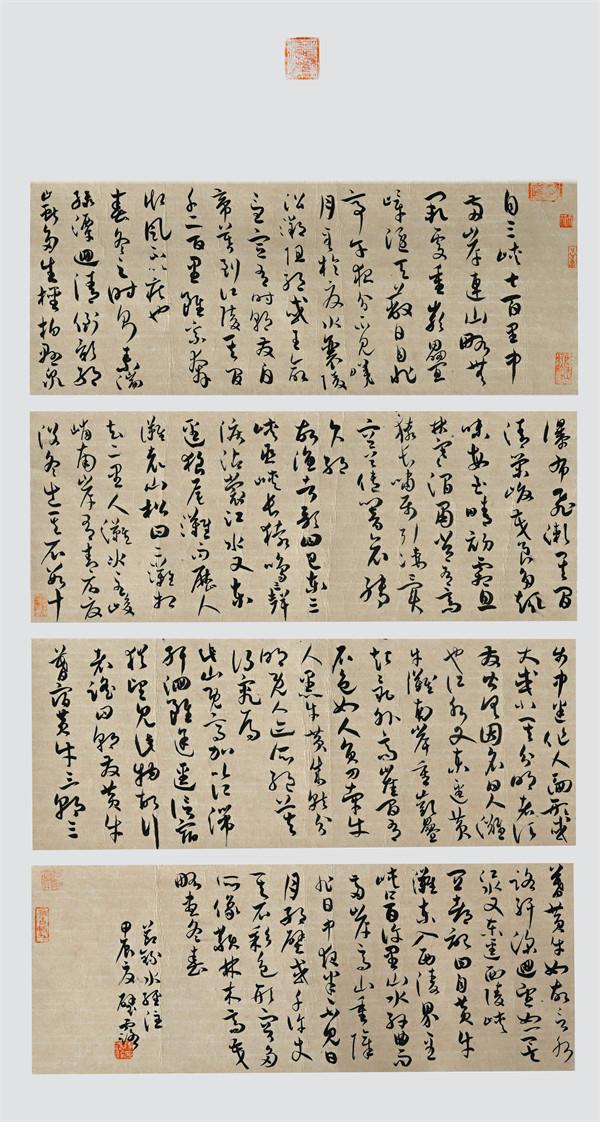 自三峽七百里中
兩岸連山略無
闕處重巖疊
嶂隱天蔽日自非
亭午夜分不見曦
月至於夏水襄陵
沿溯阻絕或王命
急宣有時朝發白
帝暮到江陵其間
千二百里雖乘奔
御風不以疾也
春冬之時則素湍
綠潭迴清倒影絕
巘多生檉柏懸泉
瀑布飛漱其間
清榮峻茂良多趣
味每至晴初霜旦
林寒澗肅常有高
猿長嘯屬引淒異
空谷傳響哀轉
久絕
故漁者歌曰巴東三
峽巫峽長猿鳴三聲
淚沾裳江水又東
逕狼尾灘而歷人
灘袁山松曰二灘相
去二里人灘水至峻
峭南岸有青石夏
沒冬出其石數十
步中悉作人面形或
大或小其分明者鬚
髮皆具因名曰人灘
也江水又東逕黃
牛灘南岸重嶺疊
起最外高崖間有
石色如人負刀牽牛
人黑牛黃成就分
明既人跡所絕莫
得究焉
此山既高加以江湍
紆迴雖途逕信宿
猶望見此物故行
者謠曰朝發黃牛
暮宿黃牛三朝三
暮黃牛如故言水
路紆深迴望如一矣
江水又東逕西陵峽
宜都記曰自黃牛
灘東入西陵界至
峽口百許里山水紆曲而
兩岸高山重障
非日中夜半不見日
月絕壁或千許丈
其石彩色形容多
所像類林木高茂
略盡冬春
節錄水經注
甲辰夏